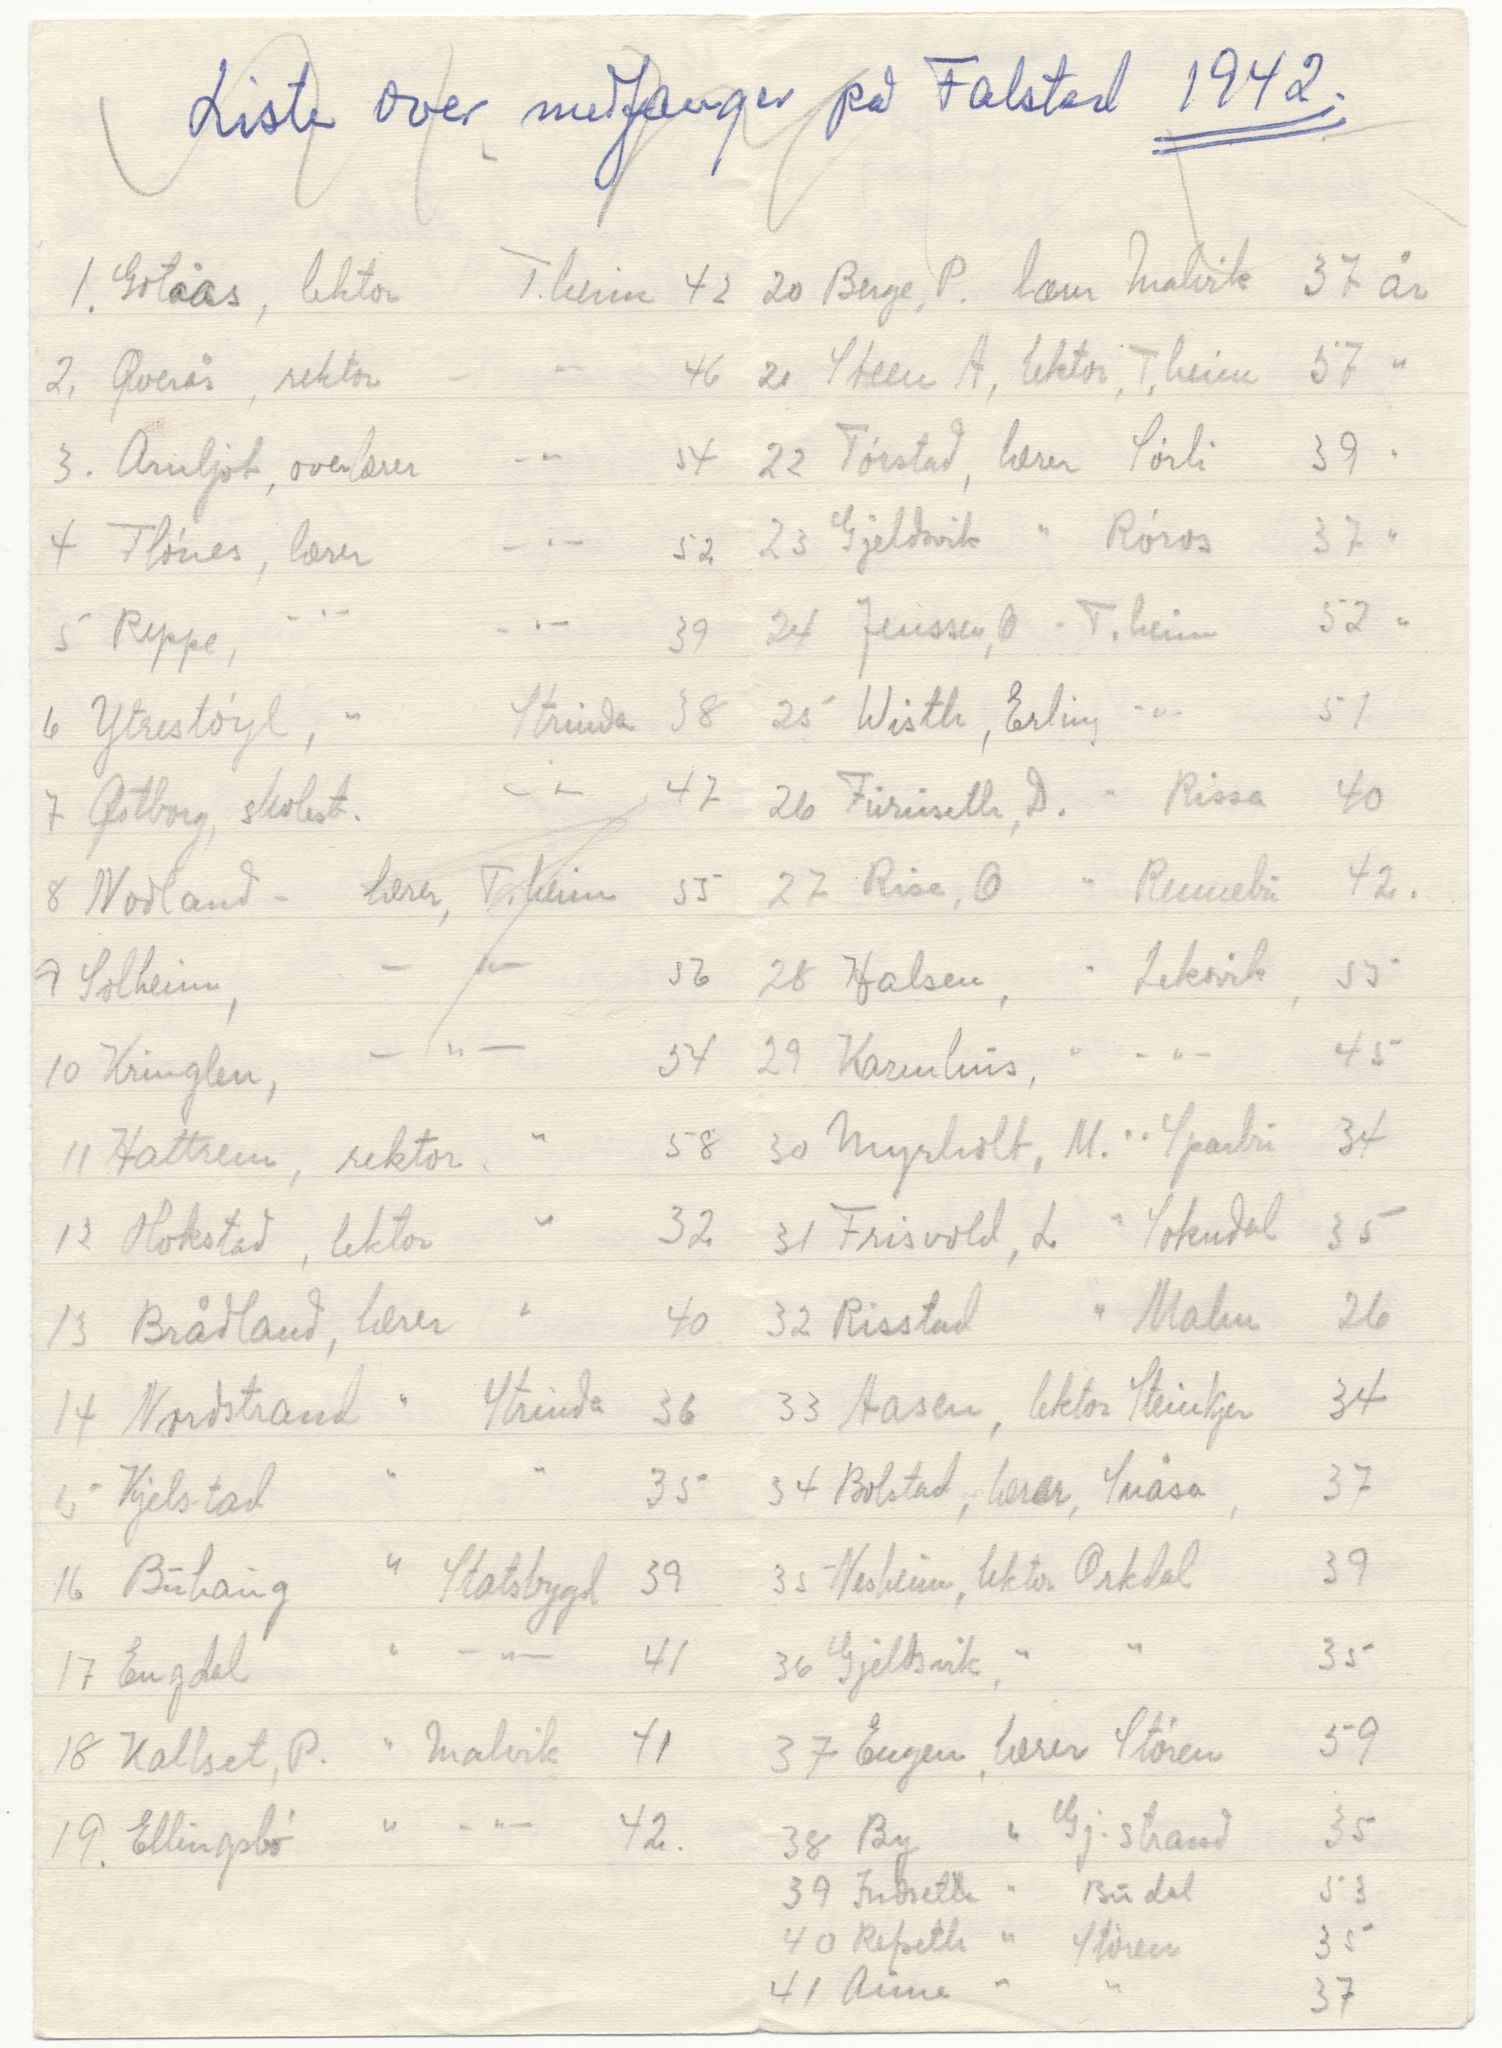 Liste over medfanger på Falstad 1942.
1. Gotåas, lektor T.heim 42
2. Øverås, rektor - " 46
3. Arnljot, overlærer - " - 54
4 Flónes, lærer - " - 52
5 Reppe, - " - - " - 39
6 Ytrestóyl, " Strinda 38
7 Østborg, skolest. - " - 47
8 Nodland - lærer, T.heim 55
9 Solheim, - " - 56
10 Kringlen, - " - 54
11 Hattrem, rektor. " 58
12 Hokstad, lektor " 32
13 Brådland, lærer " 40
14 Nordstrand " Strinda 36
15 Kjelstad " " 35
16 Buhaug " Statsbygd 39
17 Engdal " - " - 41
18 Kallset, P. " Malvik 41
19. Ellingsbó " - " - 42.
20 Berge, P. lærer Malvik 37 år
21 Steen A, lektor, T.heim 57 "
22 Tórstad, lærer Sórli 39 "
23 Gjeldsvik " Róros 37 "
24 Jenssen, O - T.heim 52 "
25 Wisth, Erling - " - 51
26 Furuseth, D. " Rissa 40
27 Rise, O " Rennebu 42.
28 Halsen, " Leksvik, 55
29 Karenhus, " - " - 45
30 Myrholt, M. " Sparbu 34
31 Frisvold, L " Soknedal 35
32 Risstad " Malm 26
33 Aasen, lektor Steinkjer 34
34 Bolstad, lærer, Snåsa, 37
35 Nesheim, lektor Orkdal 39
36 Gjeldsvik, " " 35
37 Engen, lærer Stóren 59
38 By " Gj.strand 35
39 Indseth " Budal 53
40 Refseth " Stóren 35
41 Aune " " 37